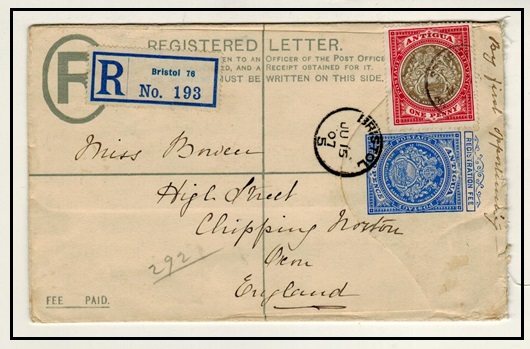 REGISTERED LETTER.
EN TO AN OFFICER OF THE POST OFFICE
ED, AND A RECEIPT OBTAINED FOR IT.
UST BE WRITTEN ON THIS SIDE.
R
R
Bristol 76
No. 193
ANTIGUA
ONE PENNY
BRISTOL
JU 15
07
5
ANTIGUA
REGISTRATION FEE
By first opportunity
Miss Bowen
High Street
Chipping Norton
Oxon
England
292
FEE PAID.